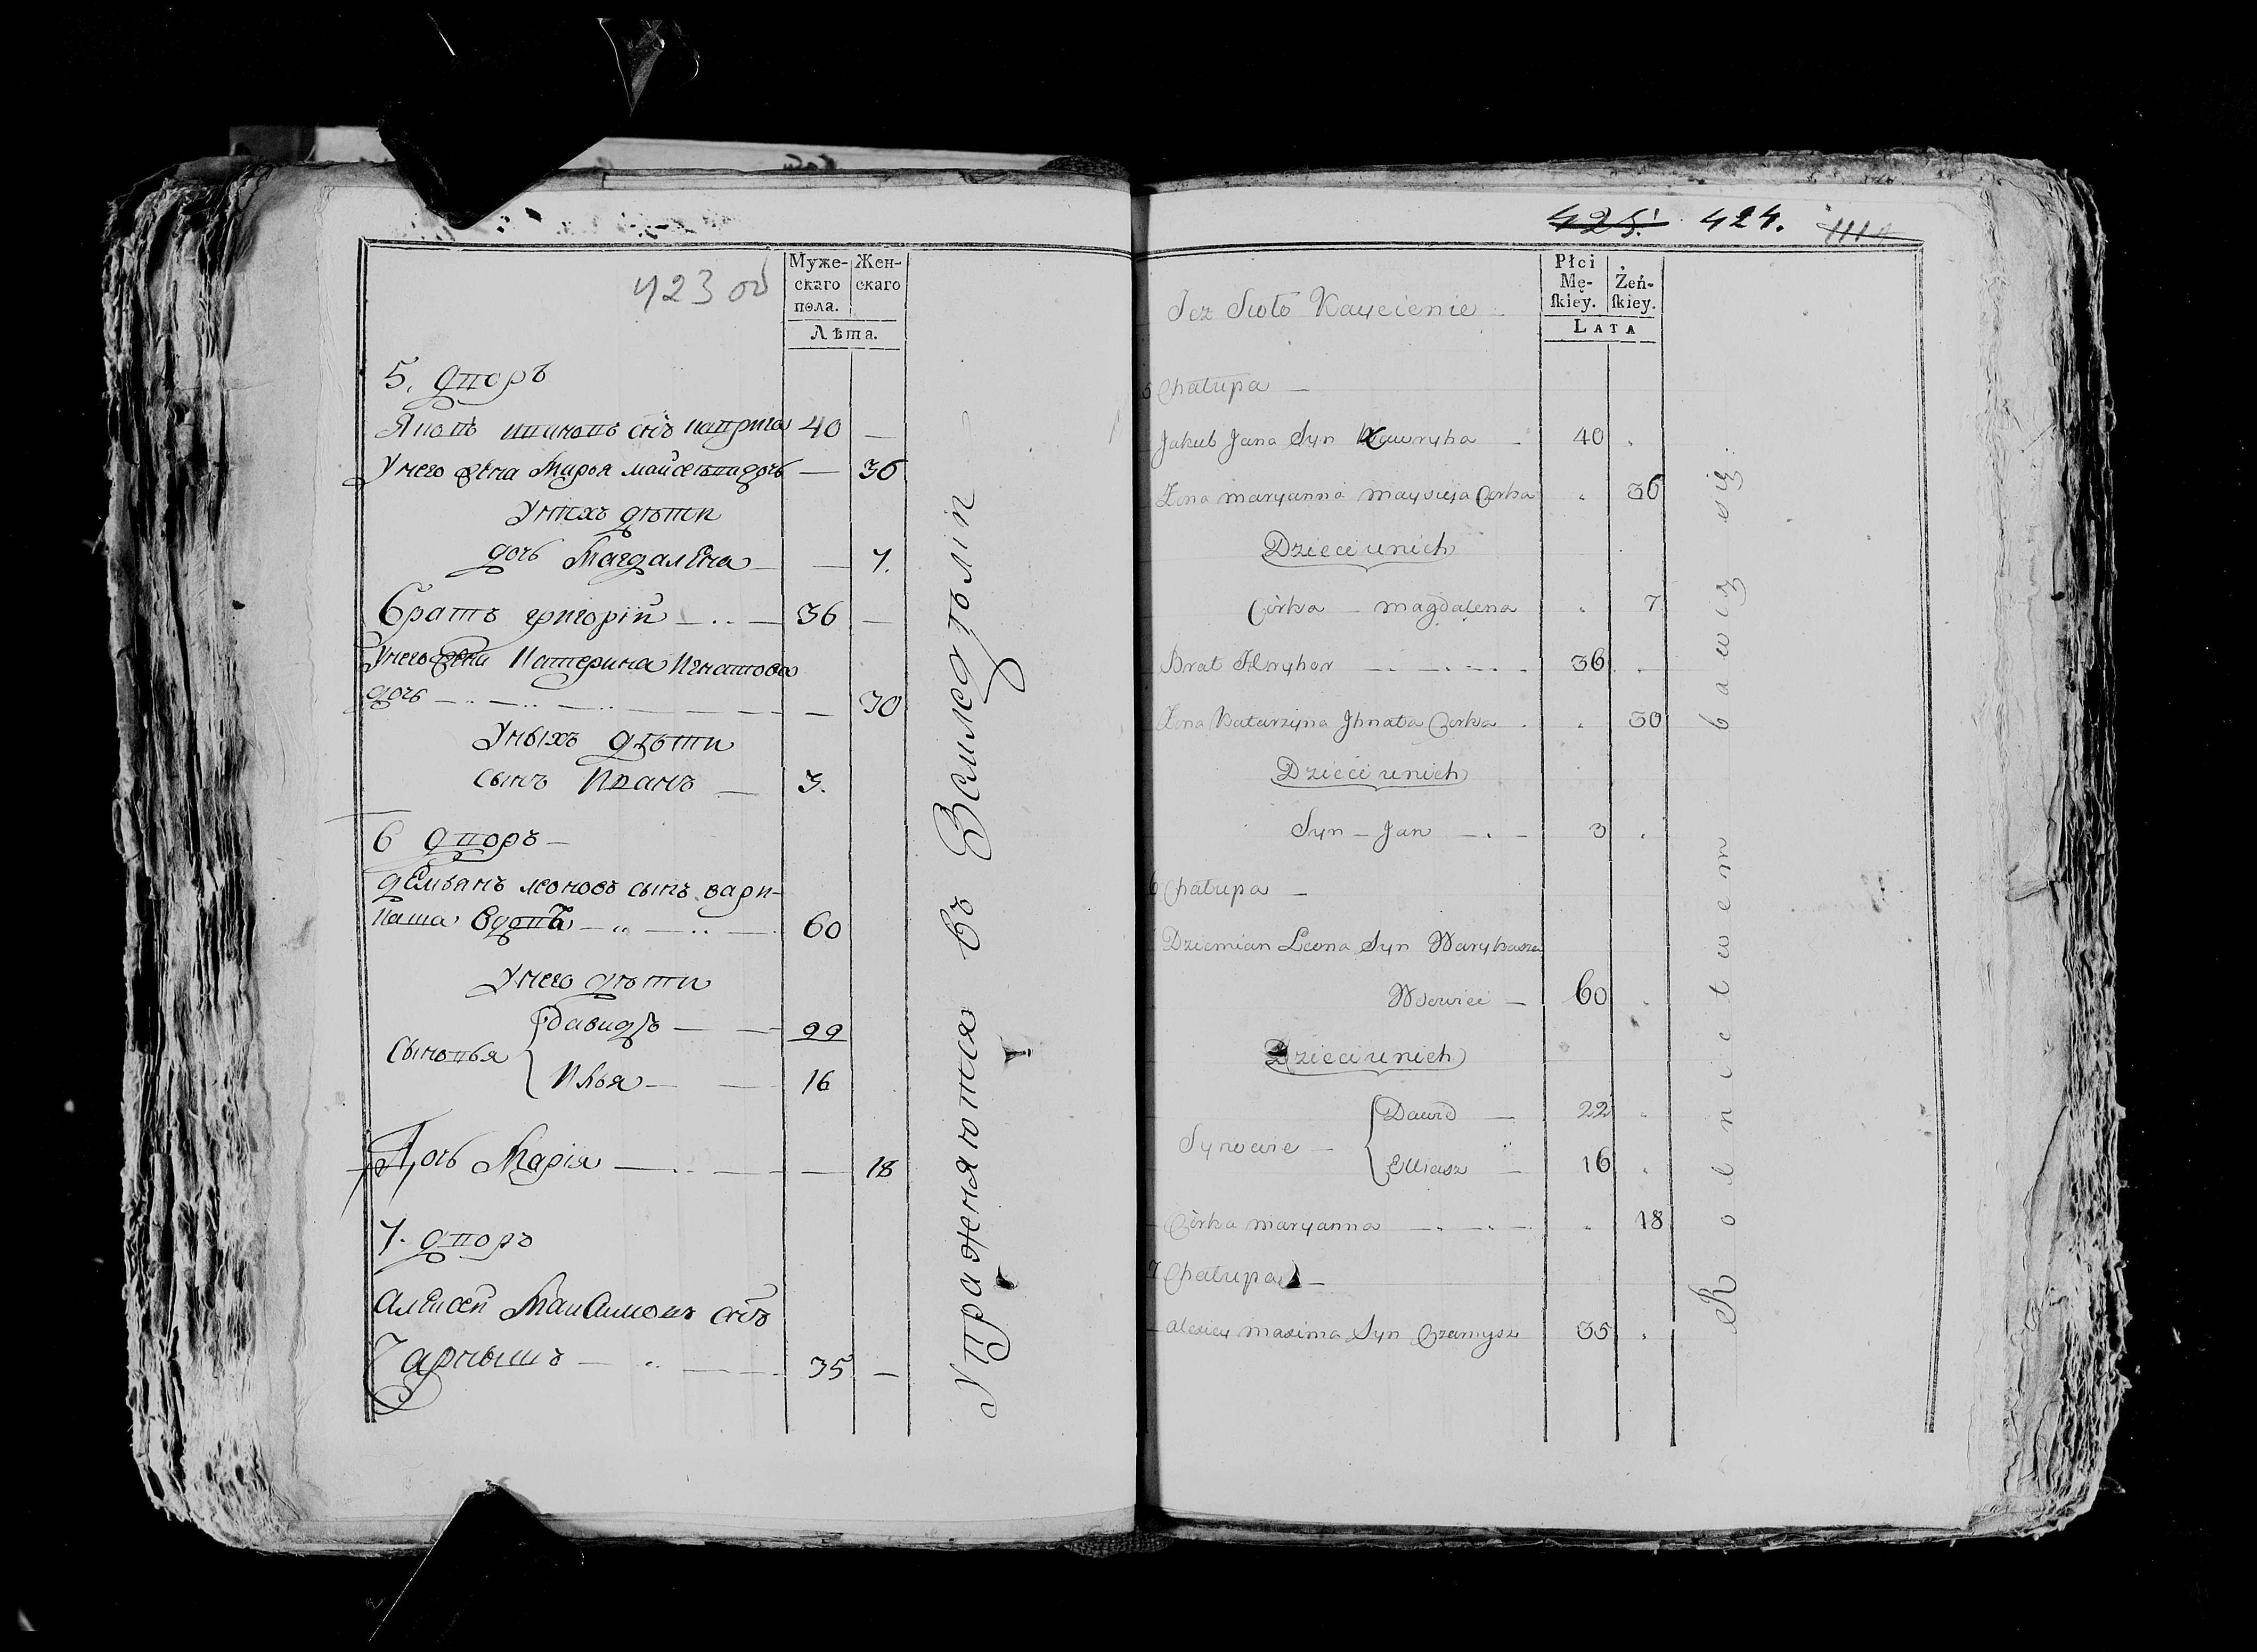 423 об
Муже-
скаго
пола.
Жен-
скаго
Лѣта.
5. дворъ
Яковъ ивановъ снъ каврига 40 —
У него жена Марья мойсеева дочь — 36
У нихъ дѣти
дочь Магдалена — — 7.
братъ григорій — .. — 36 —
У него жена Катерина Игнатова
дочь — .. — .. — — 30
У ныхъ дѣти
сынъ Иванъ — 3.
6 дворъ —
демьянъ леоновъ сынъ вари-
каша вдовъ — .. — .. — 60
У него дѣти
Сыновья { давидъ — — 22
Илья — — 16
Дочь Марія — .. — — — 18
7. дворъ
Алексей Максимовъ снъ
Чарнышъ — .. — — 35 —
Упражняются въ Земледѣліи
425. 424. 1114
Płci
Mę-
ſkiey.
Żeń-
ſkiey.
Lata
Też Sioło
5 Chałupa —
Jakub Jana Syn Kawryha - 40 .
Żona maryanna moysieja Corka . 36
Dzieci u nich
Córka — magdalena . 7
Brat Hryhor — . — . — 36 .
Żona Katarzyna Ihnata Corka . . 30
Dzieci u nich
Syn — Jan — . — 3 .
6 Chałupa —
Dziemian Leona Syn Warykasza
Wdowiec — 60 .
Dzieci u nich
Synowie — { Dawid — 22 .
Elliasz — 16 .
Córka maryanna — . — . — . 18
7 Chałupa —
alexiey maxima Syn Czarnysz 35 .
Rolnictwem bawią się.